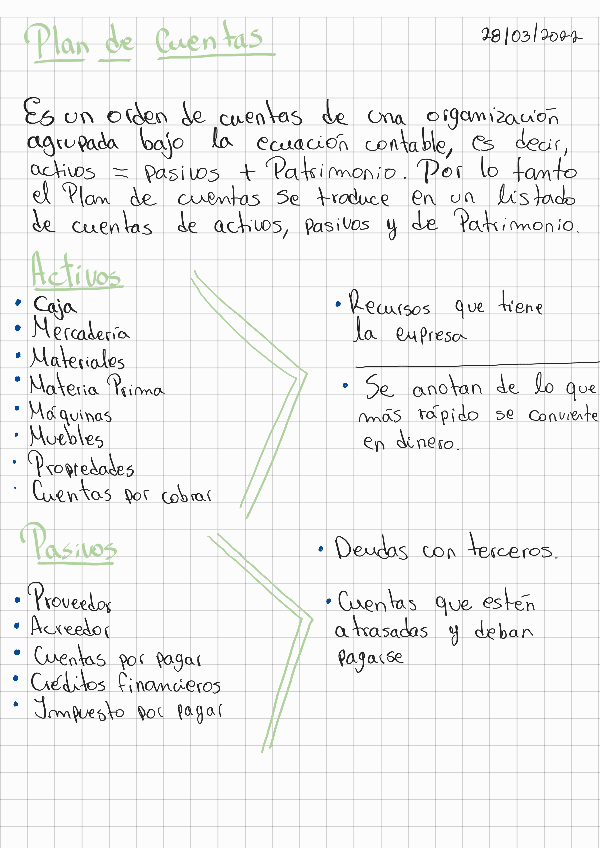 Plan de Cuentas
28/03/2022
Es un orden de cuentas de una organización
agrupada bajo la ecuación contable, es decir,
activos = pasivos + Patrimonio. Por lo tanto
el Plan de cuentas se traduce en un listado
de cuentas de activos, pasivos y de Patrimonio.
Activos
• Caja
• Mercadería
• Materiales
• Materia Prima
• Máquinas
• Muebles
• Propiedades
• Cuentas por cobrar
• Recursos que tiene
la empresa
• Se anotan de lo que
más rápido se convierte
en dinero.
Pasivos
• Proveedor
• Acreedor
• Cuentas por pagar
• Créditos financieros
• Impuesto por pagar
• Deudas con terceros.
• Cuentas que estén
atrasadas y deban
pagarse